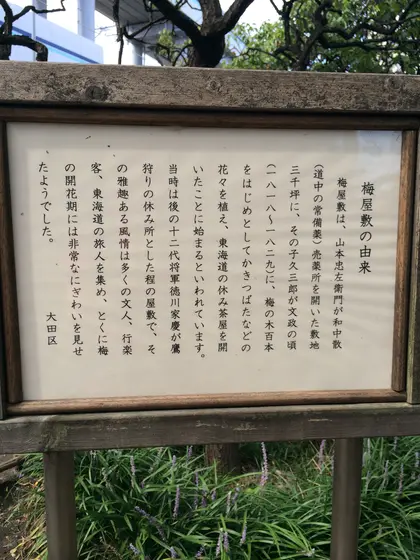 梅屋敷の由来
梅屋敷は、山本忠左衛門が和中散
(道中の常備薬)売薬所を開いた敷地
三千坪に、その子久三郎が文政の頃
(一八一八〜一八二九)に、梅の木百本
をはじめとしてかきつばたなどの
花々を植え、東海道の休み茶屋を開
いたことに始まるといわれています。
当時は後の十二代将軍徳川家慶が鷹
狩りの休み所とした程の屋敷で、そ
の雅趣ある風情は多くの文人、行楽
客、東海道の旅人を集め、とくに梅
の開花期には非常なにぎわいを見せ
たようでした。
大田区